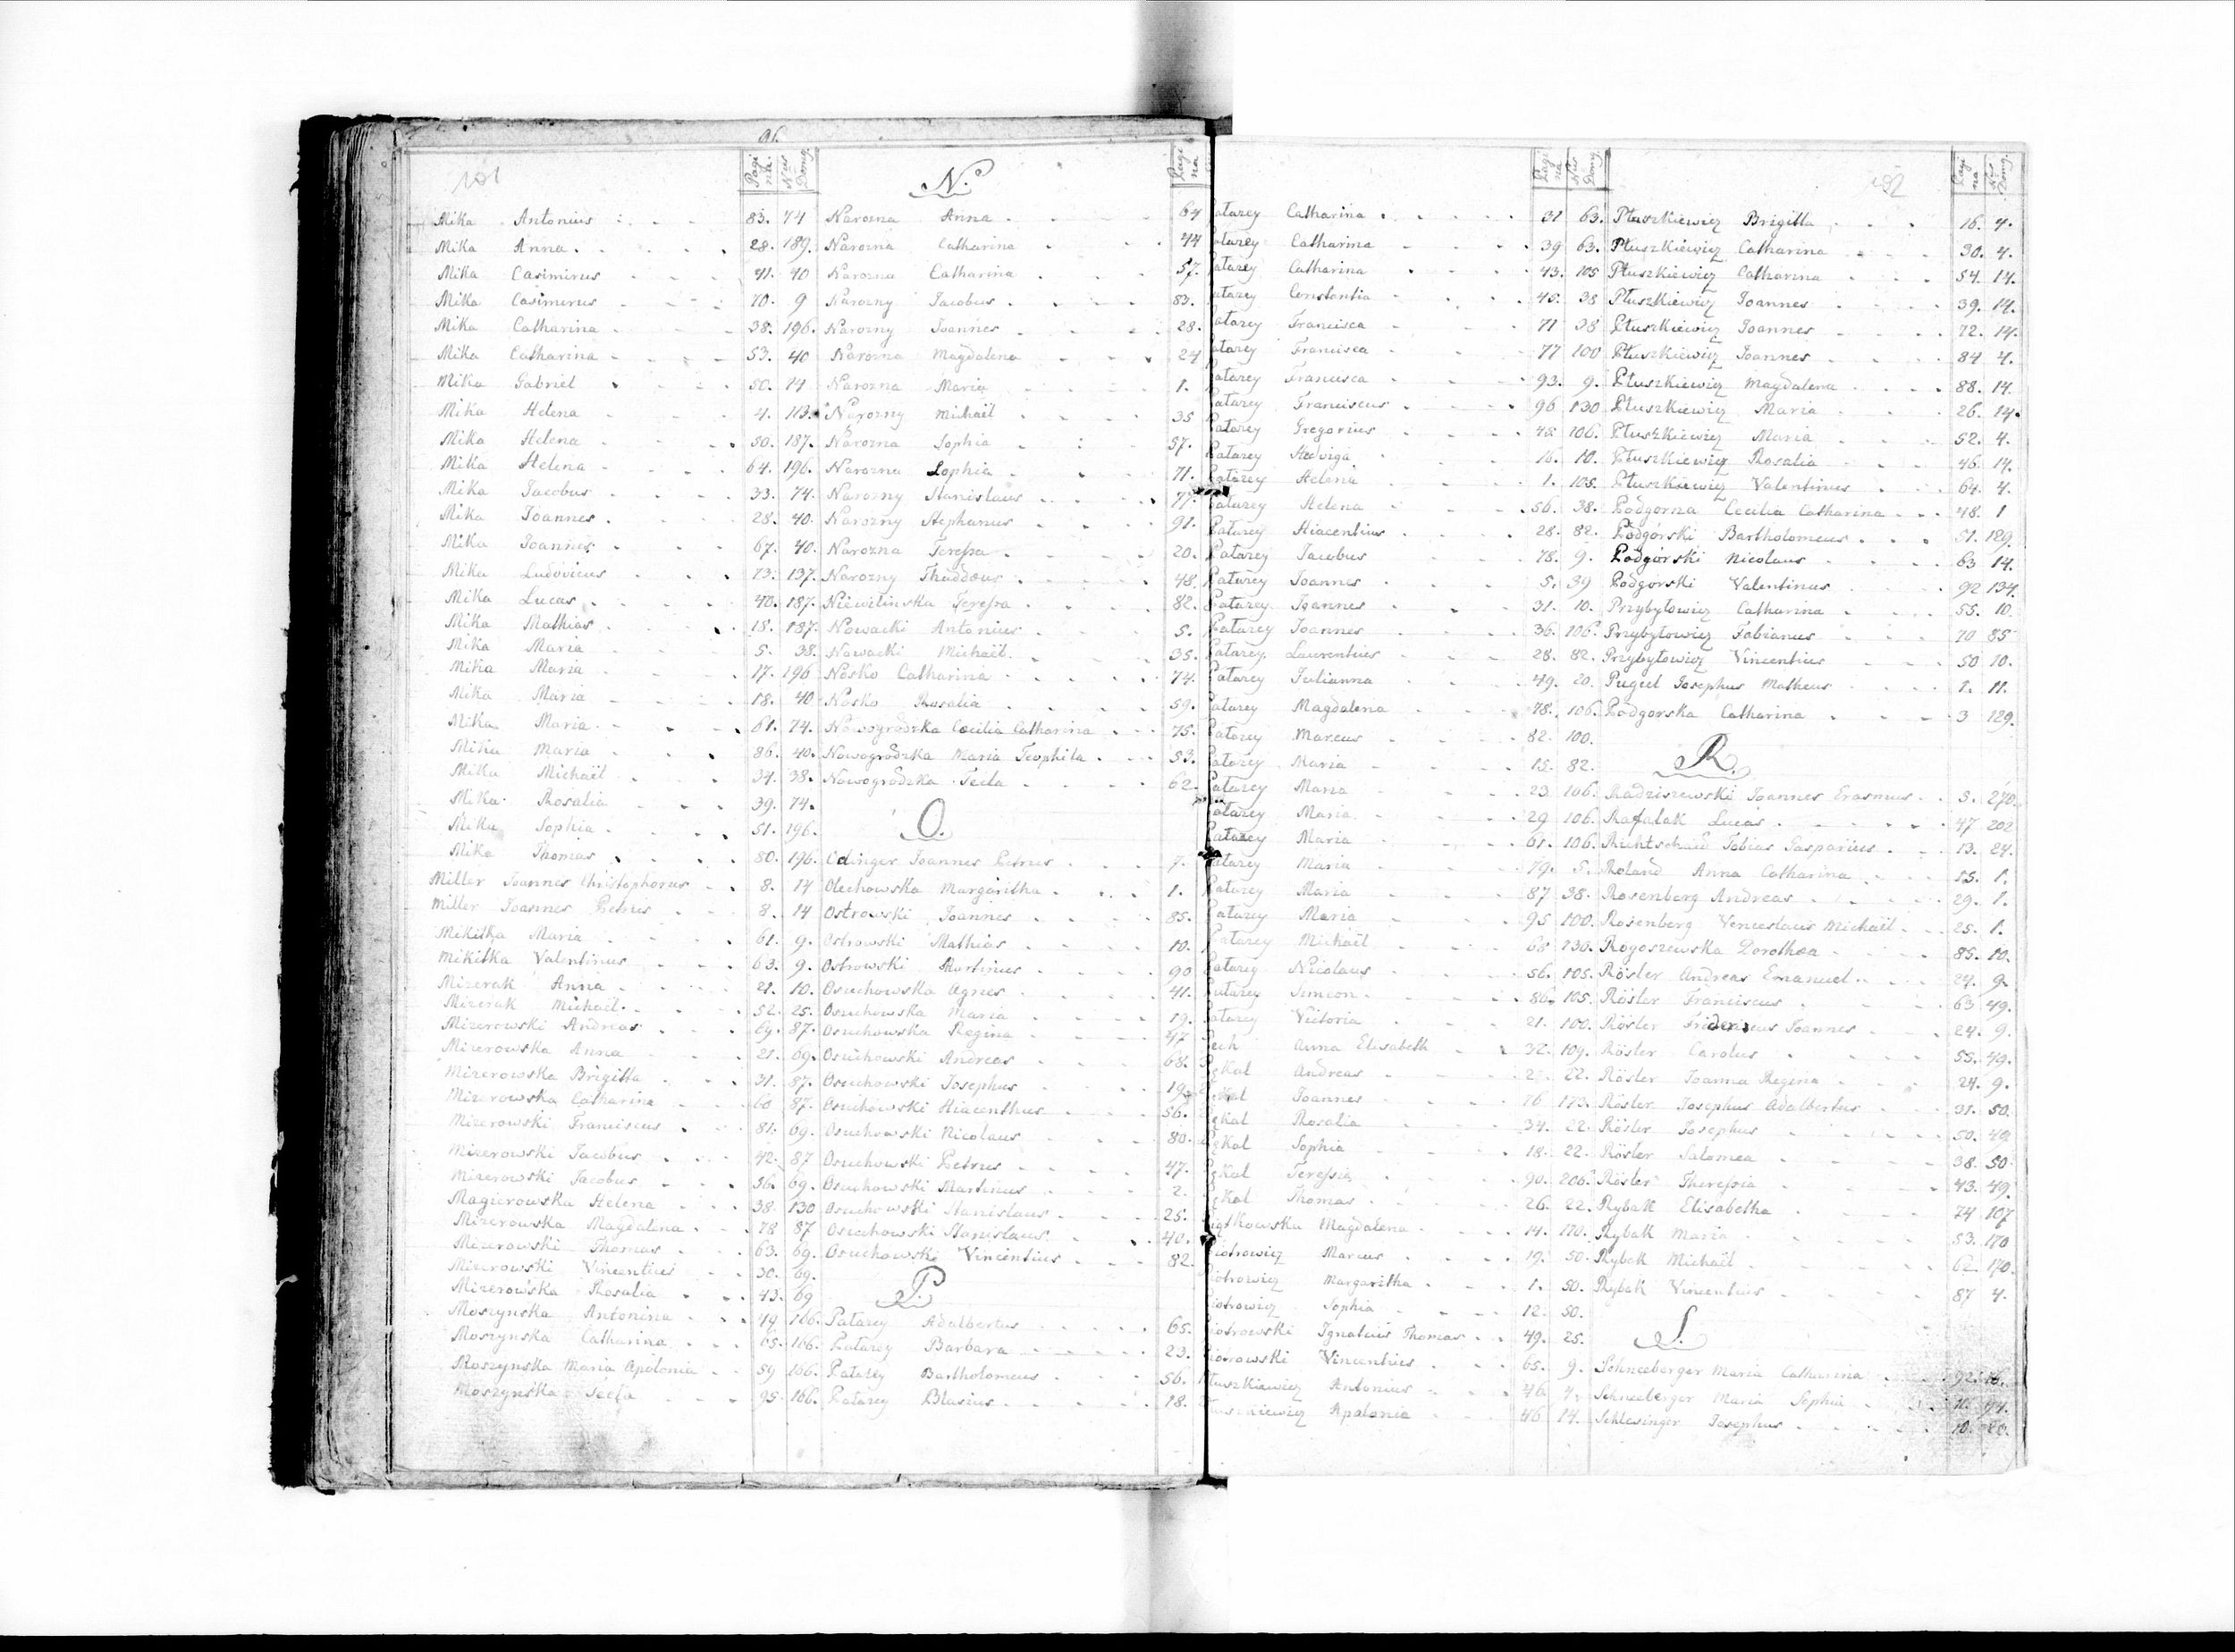 96.
101
Pagi na. Nrus Domg.
Mika Antonius 83. 74
Mika Anna 28. 189.
Mika Casimirus 41. 40
Mika Casimirus 70. 9
Mika Catharina 38. 196.
Mika Catharina 53. 40
Mika Gabriel 50. 14
Mika Helena 4. 113.
Mika Helena 50. 187.
Mika Helena 64. 196.
Mika Jacobus 33. 74.
Mika Joannes 28. 40.
Mika Joannes 67. 40.
Mika Ludovicus 73. 137.
Mika Lucas 40. 187.
Mika Mathias 18. 187.
Mika Maria 5. 38.
Mika Maria 17. 196
Mika Maria 18. 40
Mika Maria 61. 74.
Mika Maria 86. 40.
Mika Michaël 34. 38.
Mika Rosalia 39. 74.
Mika Sophia 51. 196.
Mika Thomas 80. 196.
Miller Joannes Christophorus 8. 14
Miller Joannes Petrus 8. 14
Mikitka Maria 61. 9.
Mikitka Valentinus 63. 9.
Mizerak Anna 21. 10.
Mizerak Michaël 52. 25.
Mizerowski Andreas 69. 87.
Mizerowska Anna 21. 69.
Mizerowska Brigitta 31. 87.
Mizerowska Catharina 60 87.
Mizerowski Franciscus 81. 69.
Mizerowski Jacobus 42. 87
Mizerowski Jacobus 56. 69.
Magierowska Helena 38. 130
Mizerowska Magdalena 78 87
Mizerowski Thomas 63. 69.
Mizerowski Vincentius 30. 69.
Mizerowska Rosalia 43. 69
Moszynska Antonina 49 166.
Moszynska Catharina 65. 166.
Moszynska Maria Apolonia 59 166.
Moszynska Tecla 95. 166.
N.
Pagi na
Narozna Anna 64
Narozna Catharina 44
Narozna Catharina 57.
Narozny Jacobus 83.
Narozny Joannes 28.
Narozna Magdalena 24
Narozna Maria 1.
Narozny Michaël 35
Narozna Sophia 57.
Narozna Sophia 71.
Narozny Stanislaus 77.
Narozny Stephanus 91.
Narozna Teressa 20.
Narozny Thaddæus 48.
Niewelinska Teressa 82.
Nowacki Antonius 5.
Nowacki Michaël 35.
Nosko Catharina 74.
Nosko Rosalia 59.
Nowogrodzka Cæcilia Catharina 75.
Nowogrodzka Maria Teophila 53.
Nowogrodzka Tecla 62.
O.
Odinger Joannes Petrus 7.
Olechowska Margaritha 1.
Ostrowski Joannes 85.
Ostrowski Mathias 10.
Ostrowski Martinus 90
Osuchowska Agnes 41.
Osuchowska Maria 19.
Osuchowska Regina 47
Osuchowski Andreas 68.
Osuchowski Josephus 19.
Osuchowski Hiacenthus 56.
Osuchowski Nicolaus 80.
Osuchowski Petrus 47.
Osuchowski Martinus 2.
Osuchowski Stanislaus 25.
Osuchowski Stanislaus 40.
Osuchowski Vincentius 82.
P.
Patarey Adalbertus 65.
Patarey Barbara 23.
Patarey Bartholomeus 56.
Patarey Blasius 18.
Pagi na Nrus Domg.
atarey Catharina 31 63.
atarey Catharina 39 63.
atarey Catharina 43. 105
atarey Constantia 45. 38
atarey Francisca 71 38
atarey Francisca 77 100
atarey Francisca 93. 9.
atarey Franciscus 96 130
Patarey Gregorius 48 106.
Patarey Hedviga 16. 10.
Patarey Helena 1. 105.
Patarey Helena 56. 38.
Patarey Hiacentius 28. 82.
Patarey Jacobus 78. 9.
Patarey Joannes 5. 39
Patarey Joannes 31. 10.
Patarey Joannes 36. 106.
Patarey Laurentius 28. 82.
Patarey Julianna 49. 20.
Patarey Magdalena 78. 106.
Patarey Marcus 82. 100.
Patarey Maria 15. 82.
Patarey Maria 23. 106.
Patarey Maria 29 106.
Patarey Maria 61. 106.
Patarey Maria 79. 5.
Patarey Maria 87 38.
Patarey Maria 95 100.
Patarey Michaël 68 130.
Patarey Nicolaus 56. 105.
Patarey Simeon 86. 105.
Patarey Victoria 21. 100.
Pech Anna Elisabeth 32. 109.
ękal Andreas 22.
ękal Joannes 76 173.
ękal Rosalia 34. 22.
ękal Sophia 18. 22.
ękal Teressia 90. 206.
ękal Thomas 26. 22.
iątkowska Magdalena 14. 170.
iotrowicz Marcus 19. 50.
iotrowicz Margaritha 1. 50.
iotrowicz Sophia 12. 50.
iotrowski Ignatius Thomas 49. 25.
iotrowski Vincentius 65. 9.
tuszkiewicz Antonius 46. 4.
tuszkiewicz Apolonia 46 14.
192
Pagi na Nrus Domg.
Ptuszkiewicz Brigitta 16. 4.
Ptuszkiewicz Catharina 30. 4.
Ptuszkiewicz Catharina 54. 14.
Ptuszkiewicz Joannes 39. 14.
Ptuszkiewicz Joannes 72. 14.
Ptuszkiewicz Joannes 84 4.
Ptuszkiewicz Magdalena 88. 14.
Ptuszkiewicz Maria 26. 14.
Ptuszkiewicz Maria 52. 4.
Ptuszkiewicz Rosalia 46 14.
Ptuszkiewicz Valentinus 64. 4.
Podgorna Cecilia Catharina 48. 1
Podgórski Bartholomeus 51. 129.
Podgórski Nicolaus 63 14.
Podgorski Valentinus 92 134.
Przybyłowicz Catharina 55. 10.
Przybyłowicz Fabianus 70 85
Przybyłowicz Vincentius 50 10.
Pugeel Josephus Matheus 1. 11.
Podgorska Catharina 3 129.
R.
Radziszewski Joannes Erasmus 5. 270.
Rafalak Lucas 47 202
Richtschaid Tobias Gasparius 13. 24.
Roland Anna Catharina 15. 1.
Rosenberg Andreas 29. 1.
Rosenberg Venceslaus Michaël 25. 1.
Rogoszewska Dorothea 85. 10.
Rösler Andreas Emanuel 24. 9.
Rösler Franciscus 63 49.
Rösler Fridericus Joannes 24. 9.
Rösler Carolus 55. 49.
Rösler Joanna Regina 24. 9.
Rösler Josephus Adalbertus 31. 50.
Rösler Josephus 50. 49
Rösler Salomea 38. 50
Rösler Theressia 43. 49.
Rybak Elisabetha 74 107
Rybak Maria 53. 170
Rybak Michaël 62. 170.
Rybak Vincentius 87 4.
S.
Schneeberger Maria Catharina 92. 16.
Schneeberger Maria Sophia
Schlesinger Josephus 10.